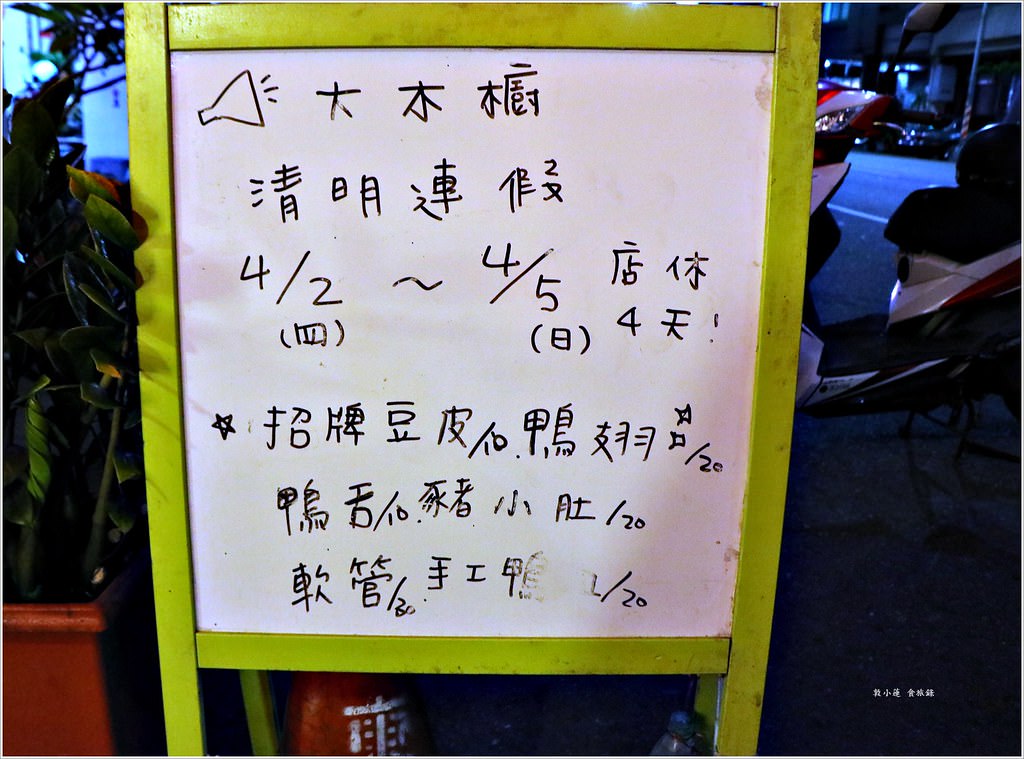 大木櫥
清明連假
4/2 ～ 4/5 店休
(四) (日) 4天!
☆招牌豆皮/10.鴨翅☆/20
鴨舌/10.豬小肚/20
軟管/20.手工鴨 /20
敦小蓮 食旅錄